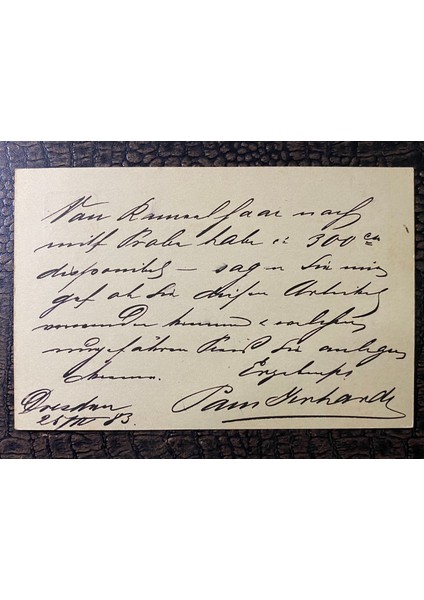 Von Kameelhaar nach
mitf. Probe habe ca 300 Ctr
disponibel – sagen Sie mir
gef. ob Sie diesen Artikel
verwenden können & welchen
ungefähren Preis Sie anlegen
können. Ergebenst
Dresden Paul Gerhardt
25/IV 83.